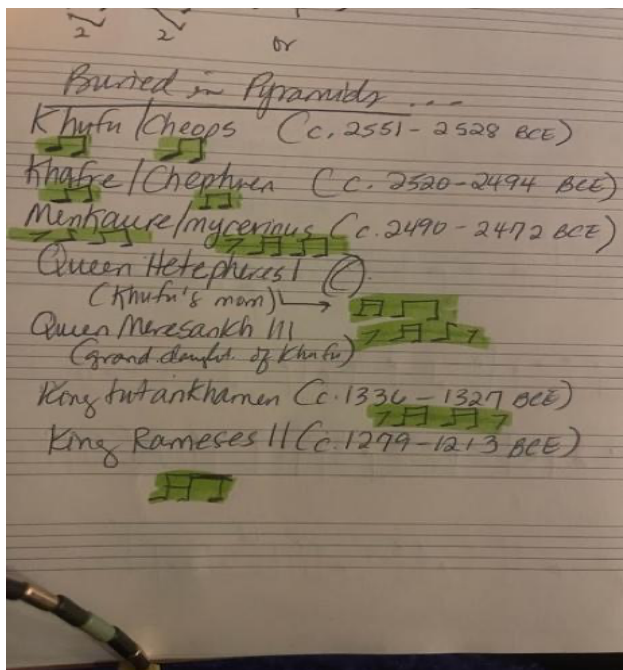 2 2
or
Buried in Pyramids ...
Khufu / Cheops (c. 2551 - 2528 BCE)
Khafre / Chephren (c. 2520 - 2494 BCE)
Menkaure / mycerinus (c. 2490 - 2472 BCE)
Queen Hetepheres I C.
(Khufu's mom)
Queen Meresankh III
(grand daught. of Khufu)
King tutankhamen (c. 1336 - 1327 BCE)
King Rameses II (c. 1279 - 1213 BCE)